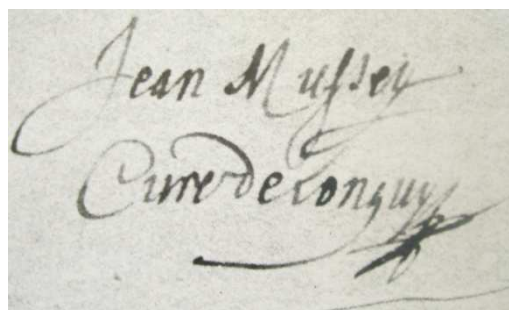 Jean Mussey
Curé de Longuy